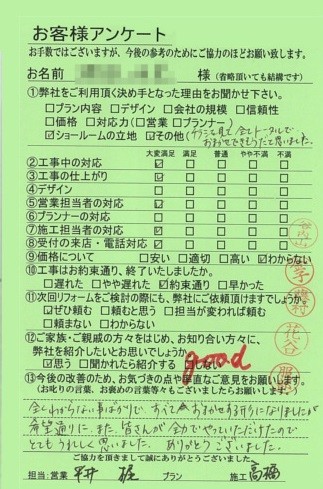 お客様アンケート
お手数ではございますが、今後の参考のためにご協力のほどお願い致します。
お名前 様（省略頂いても結構です）
①弊社をご利用頂く決め手となった理由をお聞かせ下さい。
□プラン内容 □デザイン □会社の規模 □信頼性
□価格 □対応力（□営業 □プランナー）
☑ショールームの立地 ☑その他（チラシを見て 全てトータルで
おまかせできそうだと思いました。
大変満足 満足 普通 やや不満 不満
②工事中の対応 ☑ □ □ □ □
③工事の仕上がり ☑ □ □ □ □
④デザイン □ □ □ □ □
⑤営業担当者の対応 ☑ □ □ □ □
⑥プランナーの対応 □ □ □ □ □
⑦施工担当者の対応 ☑ □ □ □ □
⑧受付の来店・電話対応 ☑ □ □ □ □
⑨価格について □安い □適切 □高い ☑わからない
⑩工事はお約束通り、終了いたしましたか。
□遅れた □やや遅れた ☑約束通り □早かった
⑪次回リフォームをご検討の際にも、弊社にご依頼頂けますでしょうか。
☑ぜひ頼む □頼むと思う □担当が変われば頼む
□頼まない □わからない
⑫ご家族・ご親戚の方々をはじめ、お知り合い方々に、
弊社を紹介したいとお思いでしょうか。
☑思う □聞かれたら紹介する □しない
good
⑬今後の改善のため、お気づきの点や率直なご意見をお願いします。
（お叱りの言葉、お褒めの言葉等々もございましたらお願いします。）
全くわからない事ばかりで、すべておまかせする形になりましたが
希望通りに、また、皆さんが全力でやっていただけたので
とてもうれしく思いました。ありがとうございました。
ご協力を頂きまして誠にありがとうございました。
担当：営業 平井 プラン 施工 高橋
花谷